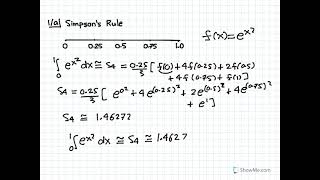 1/a) Simpson's Rule
0 0.25 0.5 0.75 1.0
f(x)=e^x²
∫₀¹ e^x² dx ≅ S4 = 0.25/3 [ f(0) + 4f(0.25) + 2f(0.5)
+ 4f(0.75) + f(1) ]
S4 = 0.25/3 [ e^0² + 4e^(0.25)² + 2e^(0.5)² + 4e^(0.75)²
+ e^1 ]
S4 ≅ 1.46272
∫₀¹ e^x² dx ≅ S4 ≅ 1.4627
ShowMe.com